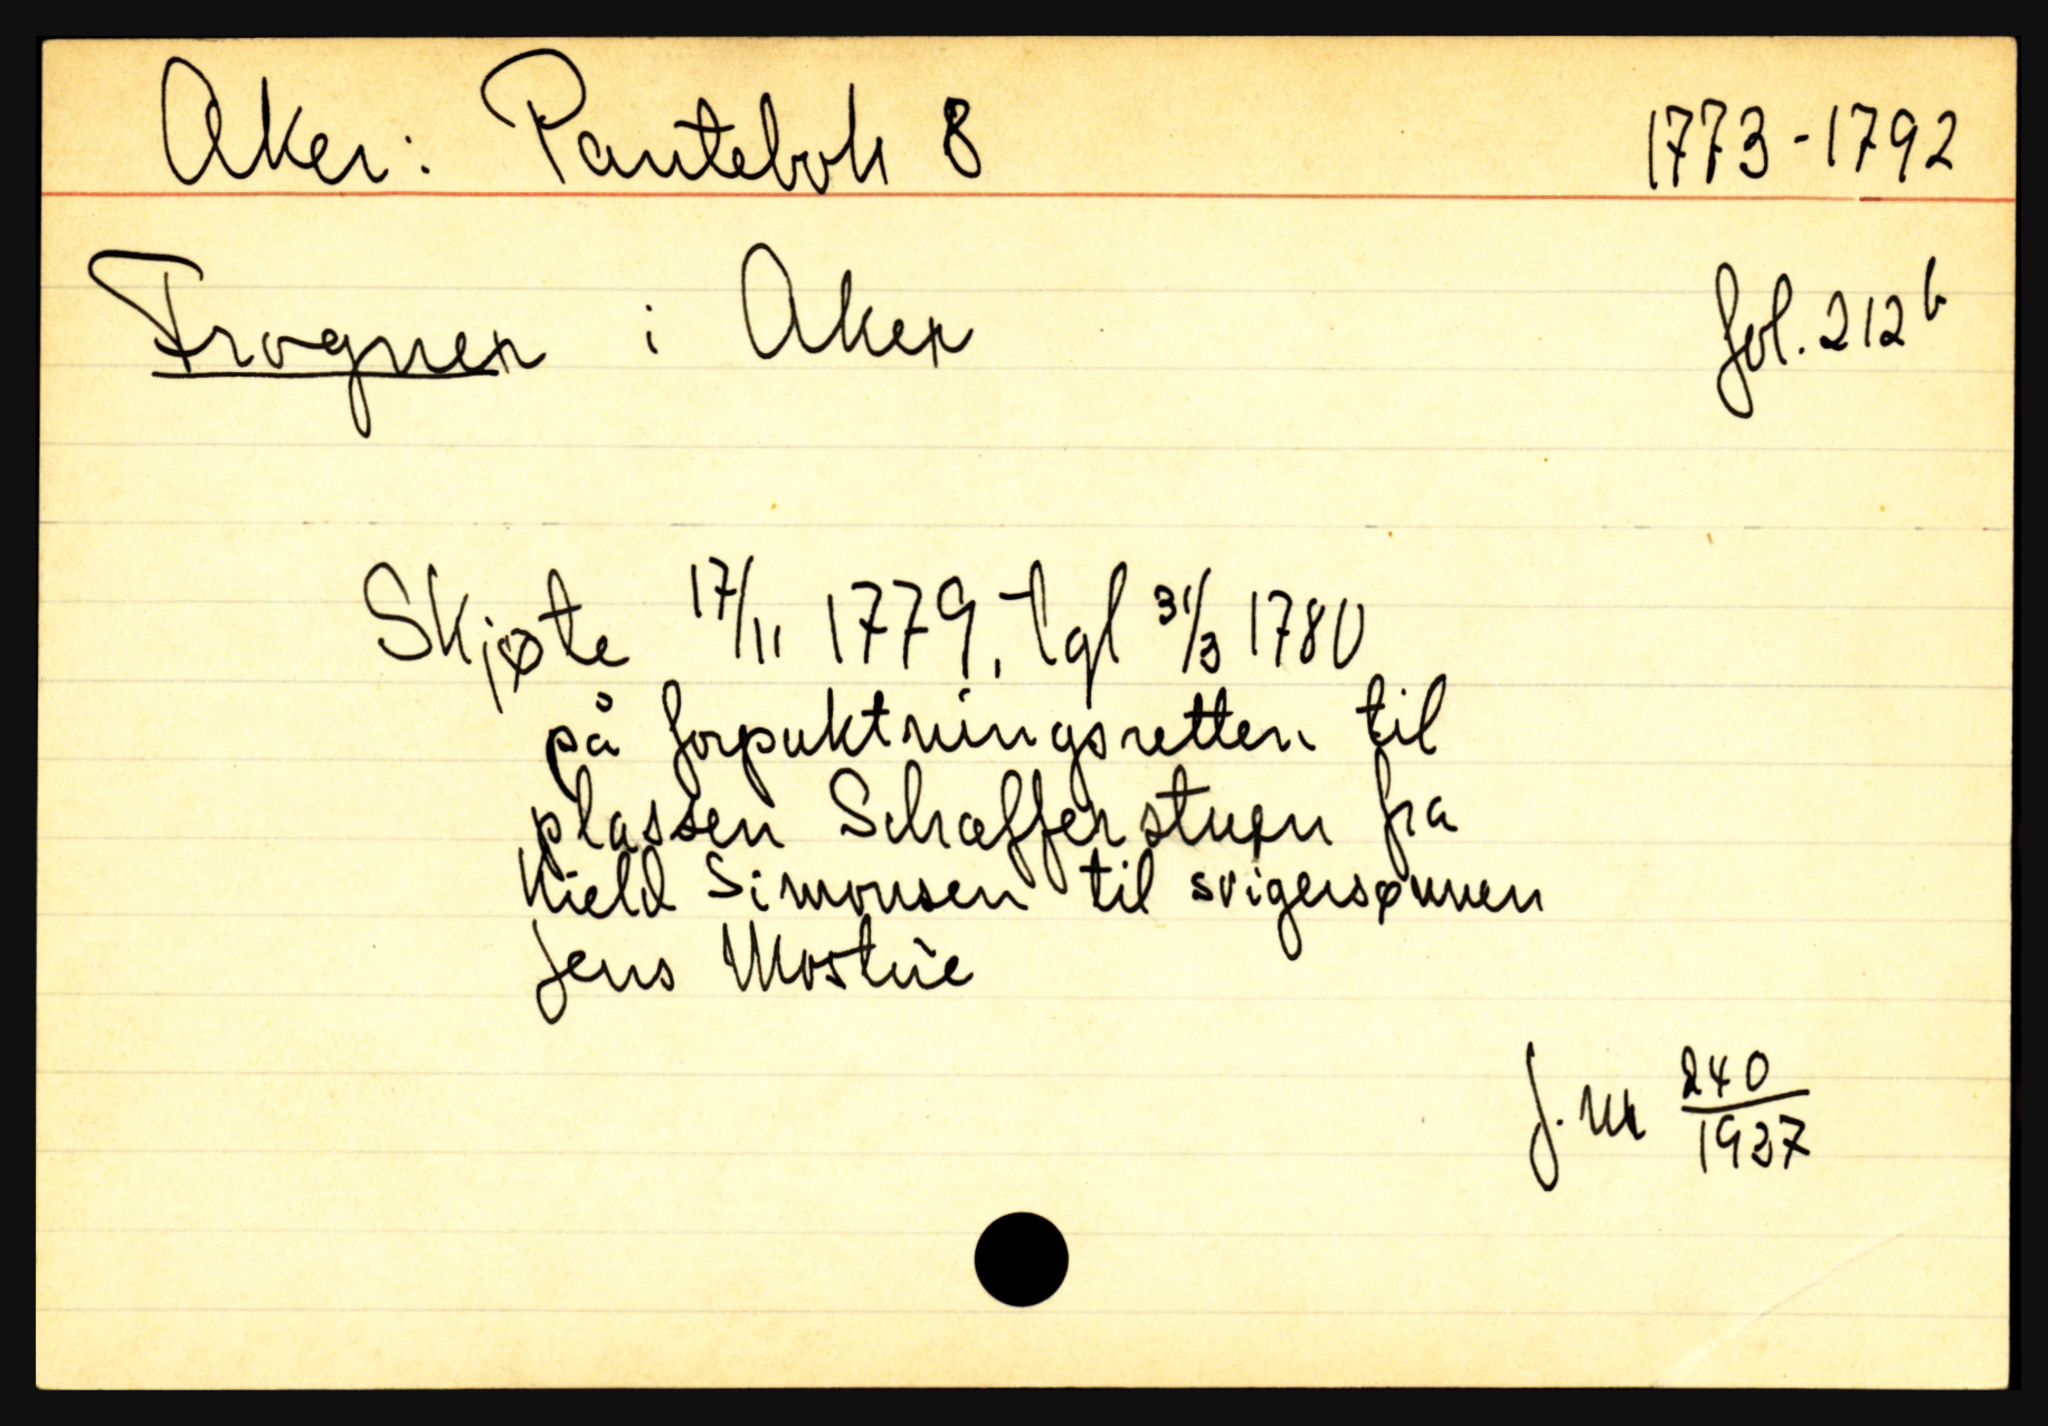 Aker: Pantebok 8 1773-1792
Frogner i Aker fol. 212b
Skjøte 17/11 1779, tgl 31/3 1780
på forpaktningsretten til
plassen Schafferstuen fra
Kield Simonsen til svigersønnen
Jens Mostue
J.nr 240/1937